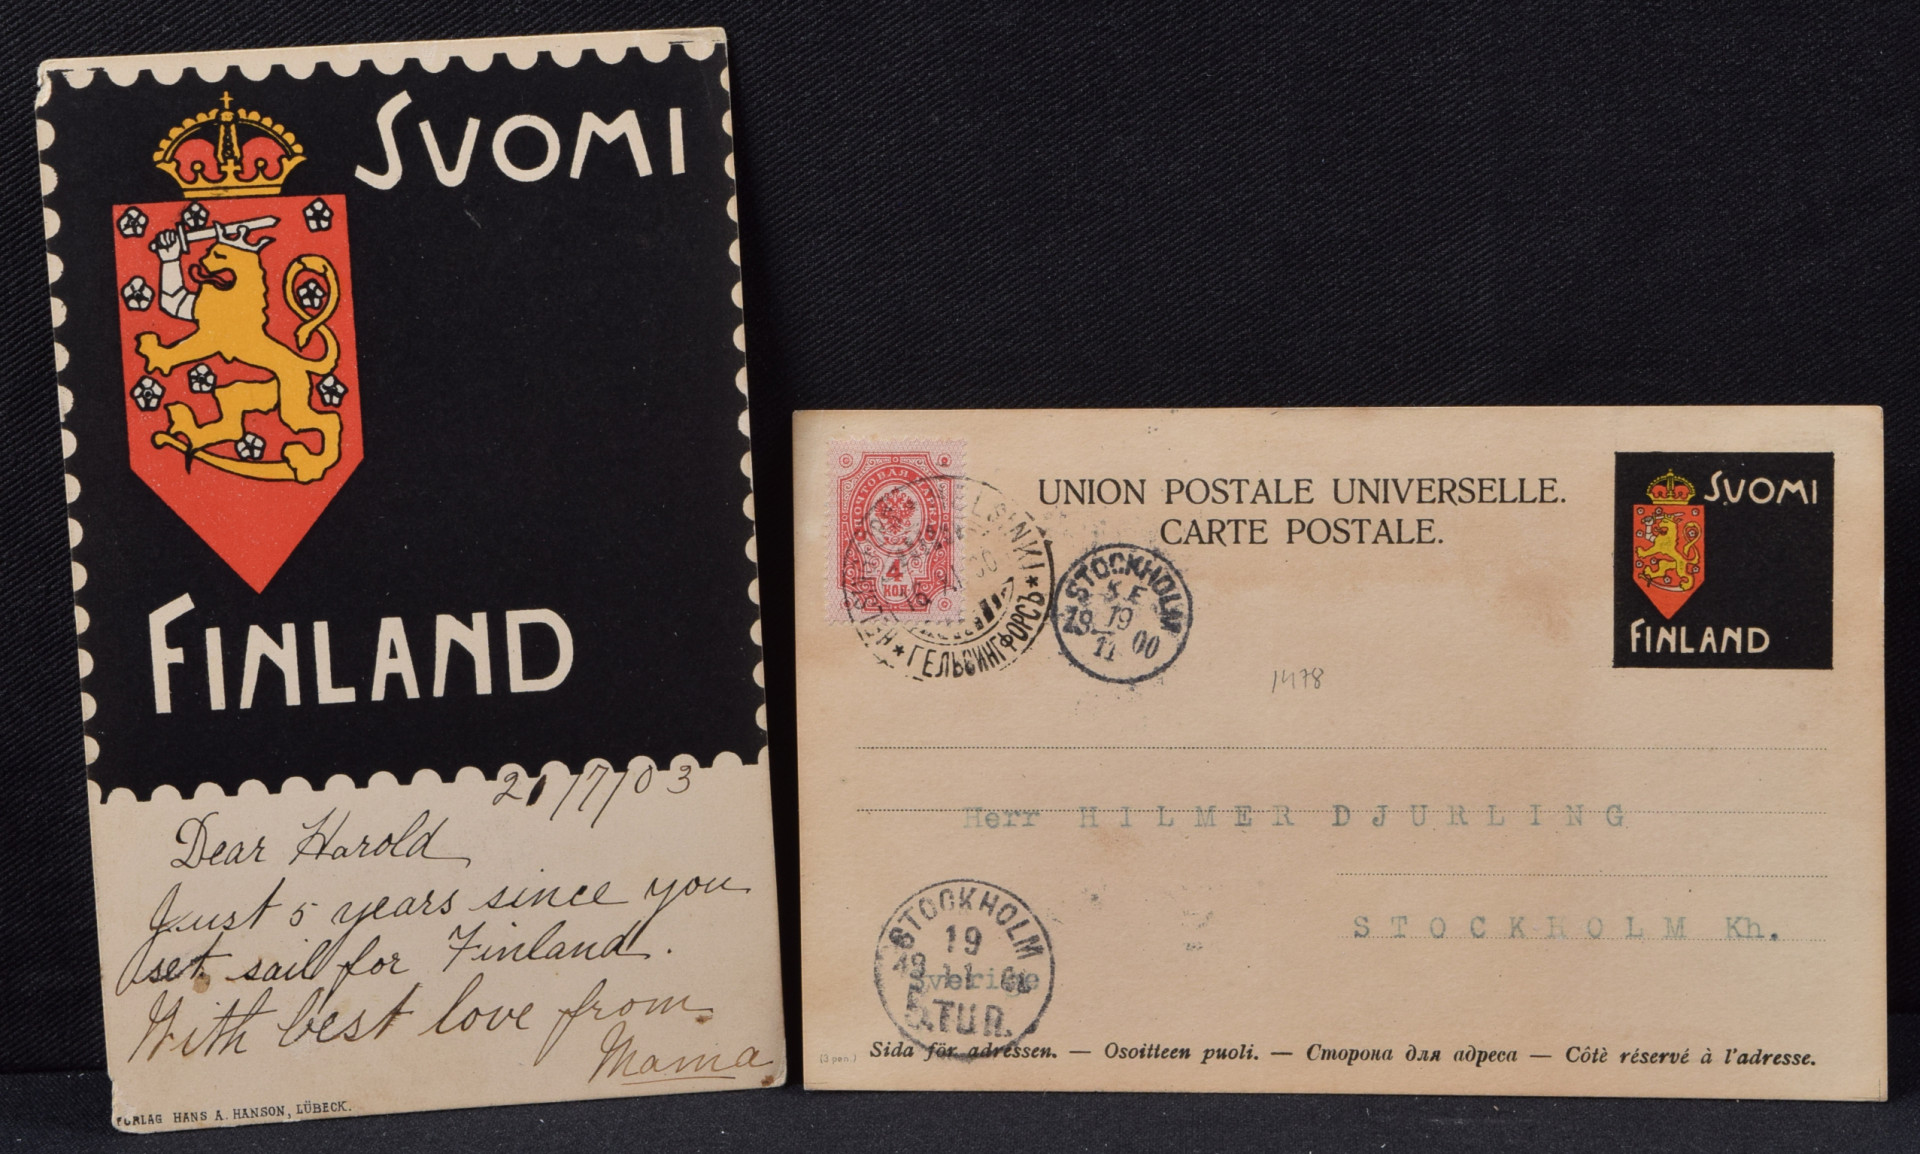 SUOMI
FINLAND
21/7/03
Dear Harold
Just 5 years since you
set sail for Finland.
With best love from
Mama
HANS A. HANSON, LÜBECK.
UNION POSTALE UNIVERSELLE.
CARTE POSTALE.
ПОЧТОВАЯ МАРКА
4
КОП
HELSINKI
ГЕЛЬСИНГФОРСЪ
STOCKHOLM
19
11 00
SUOMI
FINLAND
1478
Herr HILMER DJURLING
STOCKHOLM Kh.
Sverige
STOCKHOLM
19
5.TUR.
(3 pen.) Sida för adressen. — Osoitteen puoli. — Сторона для адреса — Côtè réservé à l'adresse.